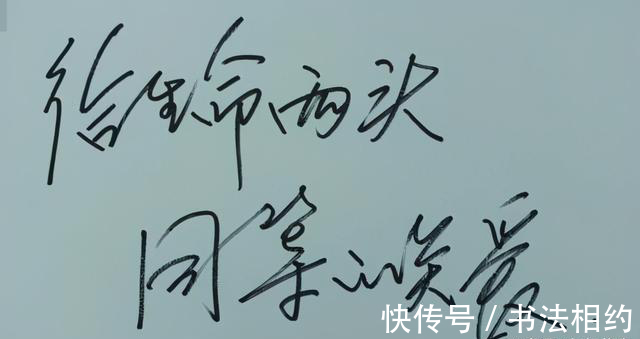 给生命两头
同等的关爱
快传号/书法相约